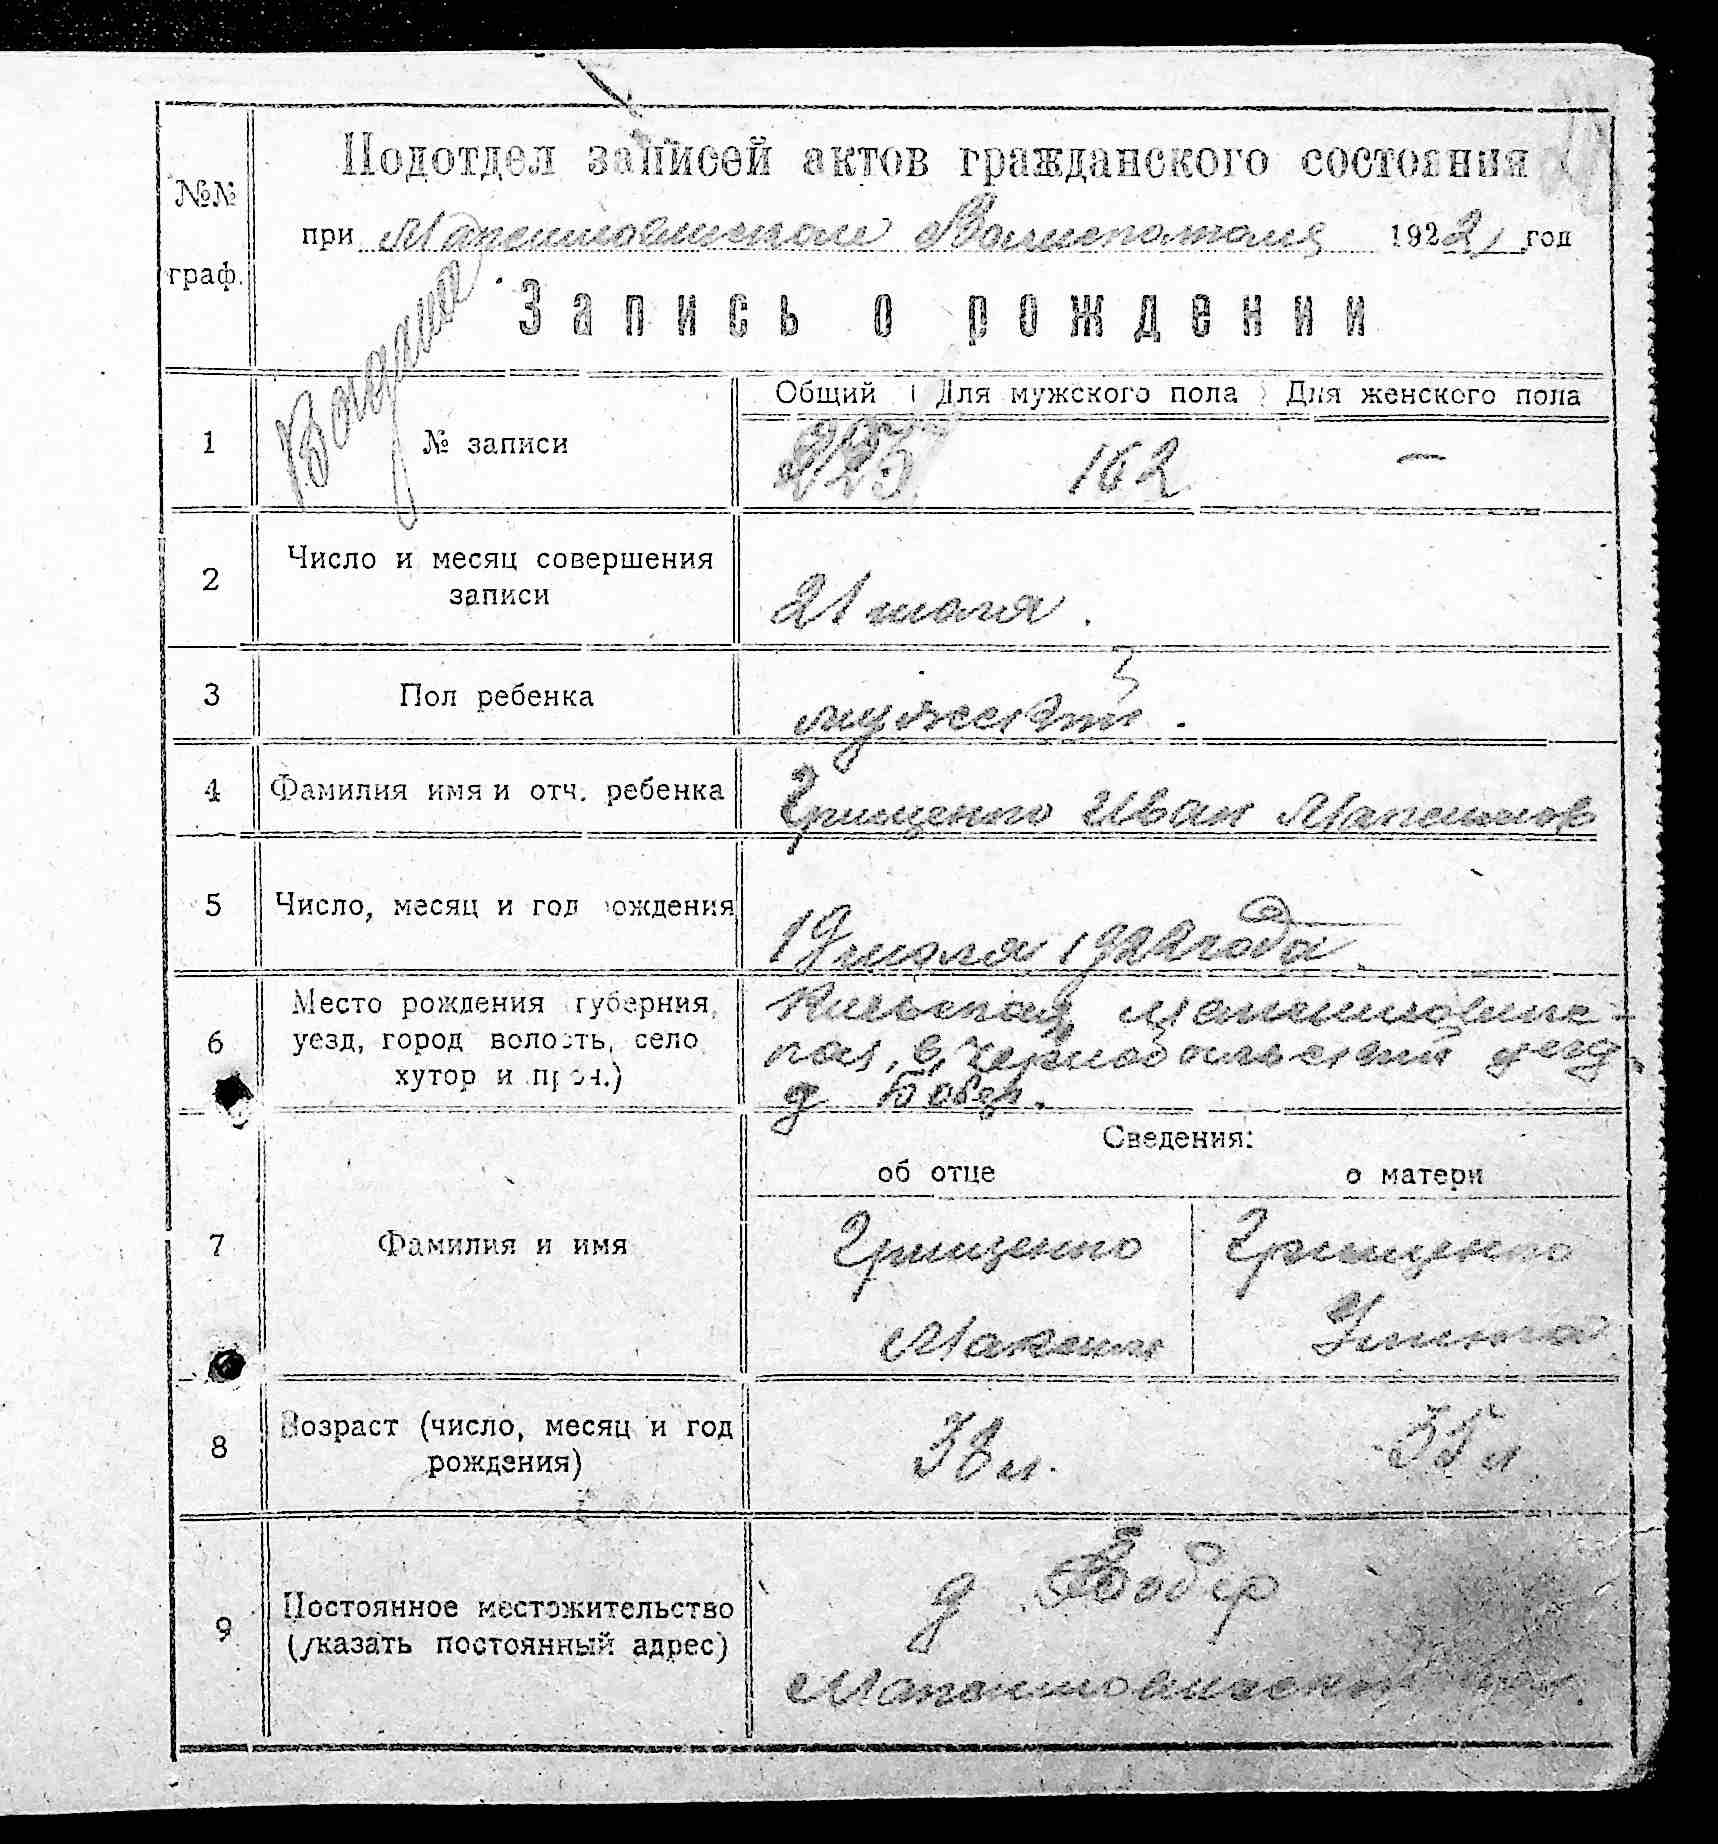 Подотдел записей актов гражданского состояния
№№
граф.
при Максимовическом Волисполкоме 1922 год
Запись о рождении
Общий Для мужского пола Для женского пола
1 № записи 225 162 —
2 Число и месяц совершения
записи
21 июля.
3 Пол ребенка мужеский.
4 Фамилия имя и отч. ребенка Грищенко Иван Максимов
5 Число, месяц и год рождения 19 июля 1922 года.
6 Место рождения губерния,
уезд, город волость, село
хутор и проч.)
Киевская, Максимовичс-
кая, в, Чернобыльский уезд.
д Бобер.
Сведения:
об отце о матери
7 Фамилия и имя Грищенко Грищенко
Максим
8 Возраст (число, месяц и год
рождения)
38 л. 35 л.
9 Постоянное местожительство
(указать постоянный адрес)
д Бобер
Максимовическ